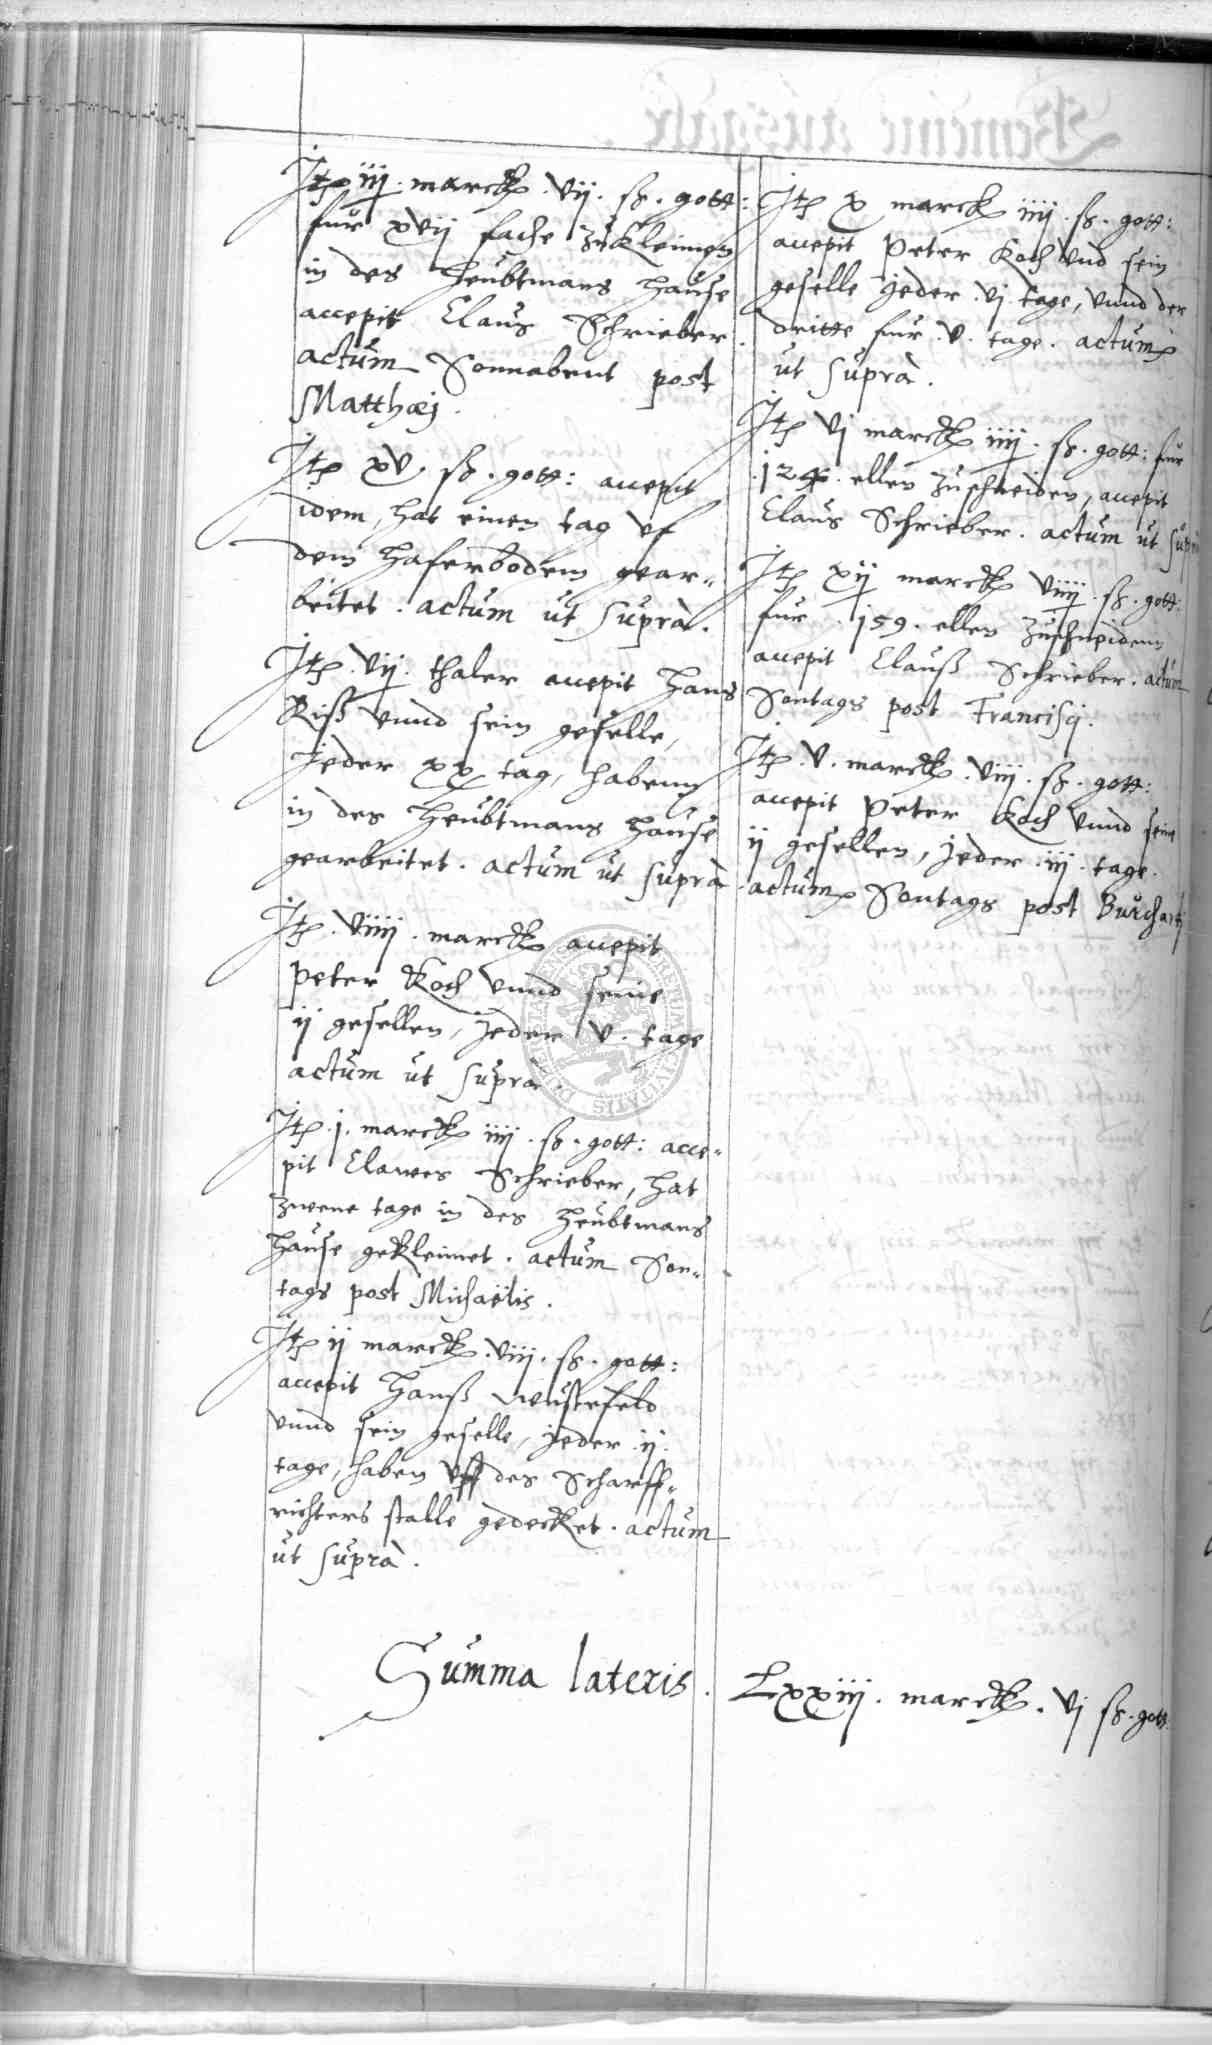 Jtem iij. marck. vij. ß. gott:
fur xvij fache zukleimen
in des heubtmans hause
accepit Claus Schrieber.
actum Sonnabent post
Matthæj.
Jtem xv. ß. gott: accepit
idem, hat einen tag vf
dem haferbodem gear-
beitet. actum ut suprà.
Jtem vij. thaler accepit Hans
Riß vnnd sein geselle,
Jeder xx tag, habenn
in des heubtmans hause
gearbeitet. actum ut suprà.
Jtem viiij. marck accepit
Peter Koch vnnd seine
ij gesellen, jeder v. tage
actum ut suprà.
Jtem j. marck iiij. ß. gott: acce-
pit Clawes Schrieber, hat
zwene tage in des heubtmans
hause gekleimet. actum Son-
tags post Michaëlis.
Jtem ij marck. viij. ß. gott:
accepit Hanß Wustefeld
vnnd sein geselle, jeder ij.
tage, haben vff des Scharff-
richters stalle gedecket. actum
ut suprà.
Jtem x marck iiij. ß. gott:
accepit Peter Koch vnd sein
geselle jeder. vj. tage, vnnd der
dritte fur. v. tage. actum
ut suprà.
Jtem vj marck iiij. ß. gott: fur
124. ellen zuschneiden, accepit
Claus Schrieber. actum ut suprà
Jtem xij marck viiij. ß. gott:
fur. 159. ellen zuschneidenn
accepit Clauß Schrieber. actum
Sontags post Francisj.
Jtem. v. marck. viij. ß. gott:
accepit Peter Koch vnnd seine
ij gesellen, jeder. iij. tage.
actum Sontags post Burchartj
Summa lateris. Lxxiij. marck. vj ß. gott.